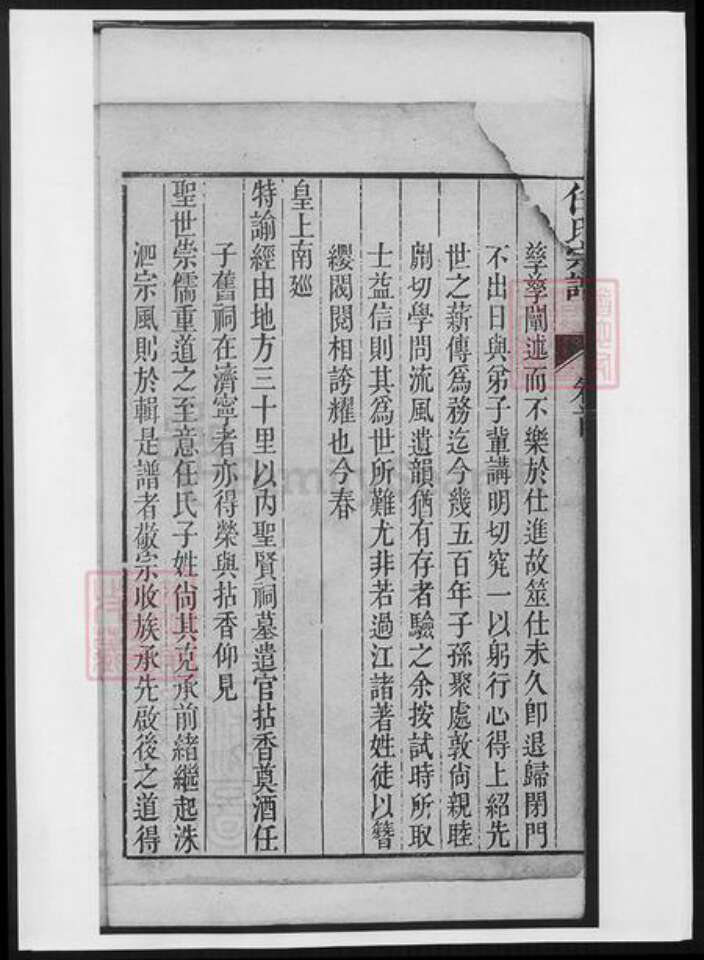 任氏宗譜 卷首
孳孳闡述而不樂於仕進故筮仕未久卽退歸閉門
不出日與弟子輩講明切究一以躬行心得上紹先
世之薪傳爲務迄今幾五百年子孫聚處敦尙親睦
剛切學問流風遺韻猶有存者驗之余按試時所取
士益信則其爲世所難尤非若過江諸著姓徒以簪
纓閥閱相誇耀也今春
皇上南廵
特諭經由地方三十里以內聖賢祠墓遣官拈香奠酒任
子舊祠在濟寧者亦得榮與拈香仰見
聖世崇儒重道之至意任氏子姓尙其克承前緖繼起洙
泗宗風則於輯是譜者敬宗收族承先啟後之道得